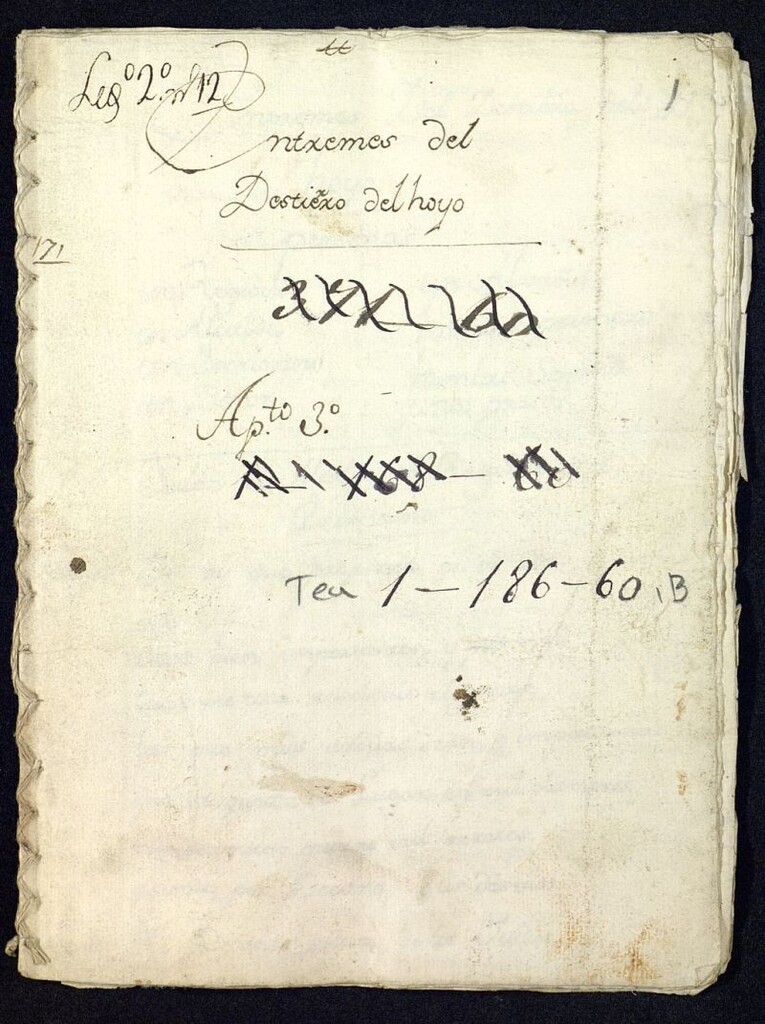 tt
Leg.º 2.º nº 12
1
Entremes del
Destierro del hoyo
171
Ap.to 3.º
Tea 1-186-60, B